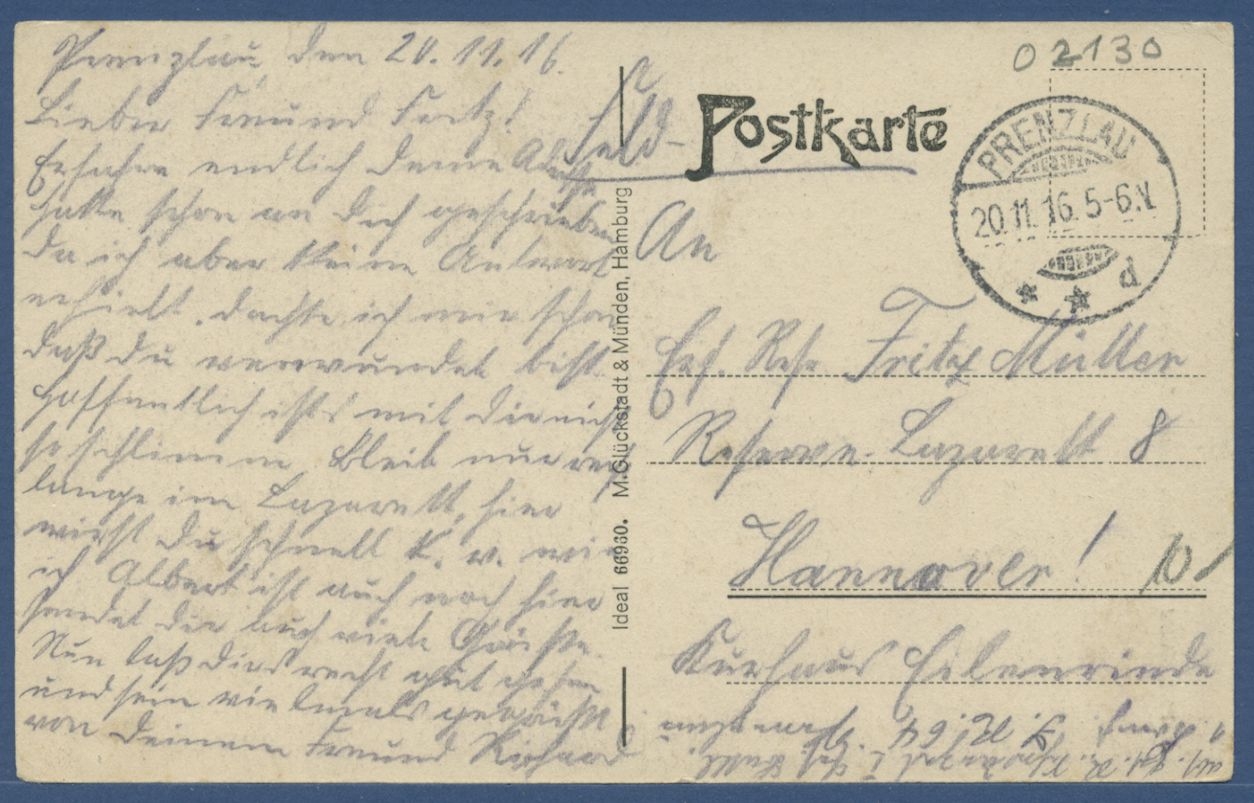 Prenzlau, den 20.11.16.
Lieber Freund Fritz!
Erfahre endlich deine Adresse
hatte schon an Dich geschrieben
da ich aber keine Antwort
erhielt, dachte ich mir schon
daß du verwundet bist.
Hoffentlich ists mit dir nicht
so schlimm. Bleib nur recht
lange im Lazarett, hier
wirst du schnell k. v. wie
ich. Albert ist auch noch hier
sendet dir auch viele Grüße.
Nun laß dirs recht gut gehen
und sei vielmals gegrüßt
von deinem Freund Richard
Feld-
Postkarte
02130
PRENZLAU
20.11.16. 5-6.N.
d
An
Ers. Res. Fritz Müller
Reserve-Lazarett 8
Hannover!
10
Kurhaus Eilenriede
J. R. 64
Prenzlau
Ideal 66960. M. Glückstadt & Münden, Hamburg